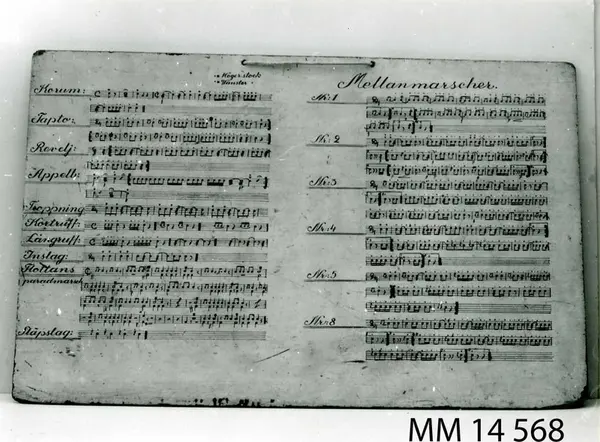 Högerstock
Vänster
Korum:
Tapto:
Revelj:
Appell:
Troppning
Kortruff:
Långruff:
Instag:
Flottans
paradmarsch
Släpslag:
Mellanmarscher.
No: 1
No: 2
No: 3
No: 4
No: 5
No: 8
MM 14 568